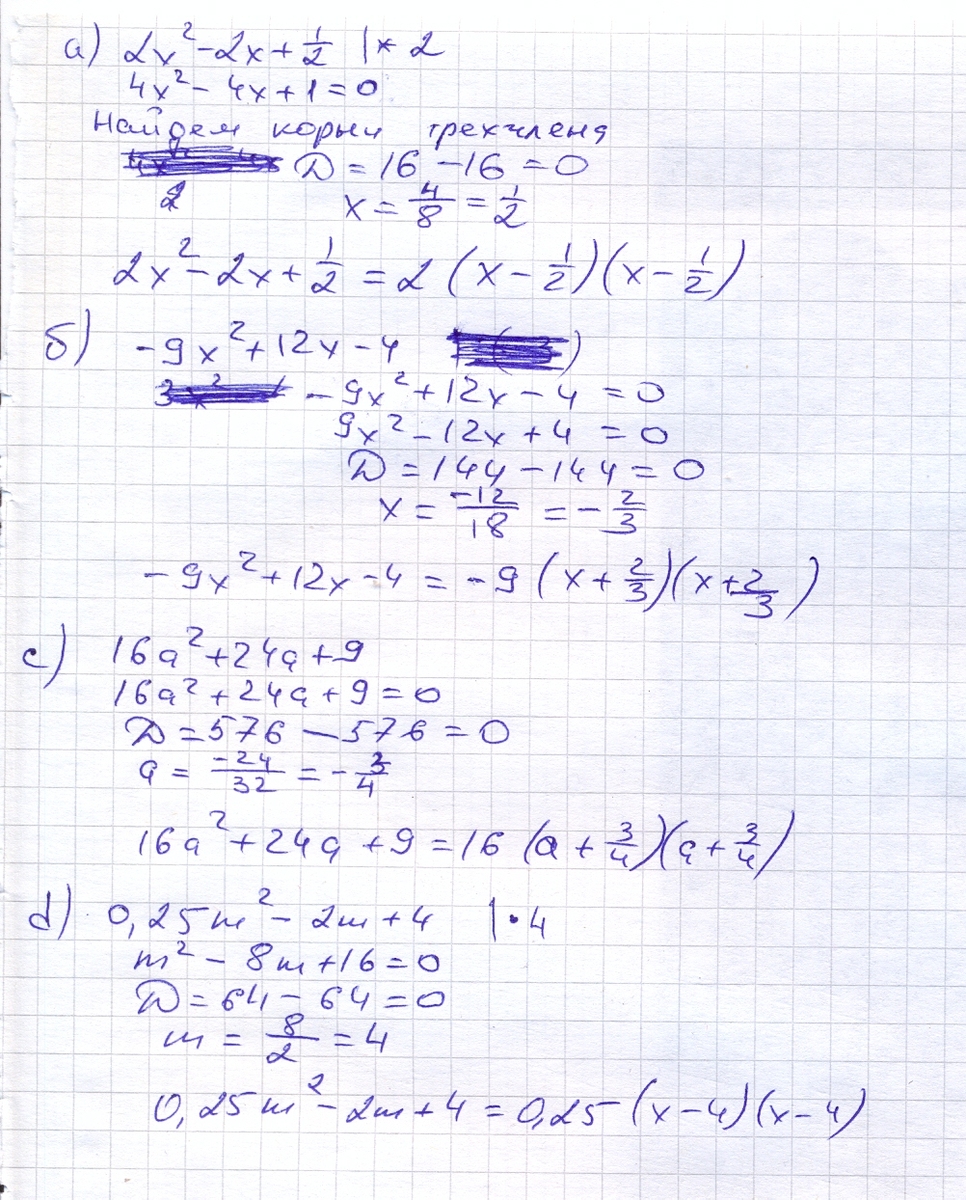 а) 2x² - 2x + 1/2 |× 2
4x² - 4x + 1 = 0
Найдем корни трехчлена
D = 16 - 16 = 0
2 x = 4/8 = 1/2
2x² - 2x + 1/2 = 2 (x - 1/2)(x - 1/2)
б) -9x² + 12x - 4
-9x² + 12x - 4 = 0
9x² - 12x + 4 = 0
D = 144 - 144 = 0
x = -12/18 = -2/3
-9x² + 12x - 4 = -9 (x + 2/3)(x + 2/3)
c) 16a² + 24a + 9
16a² + 24a + 9 = 0
D = 576 - 576 = 0
a = -24/32 = -3/4
16a² + 24a + 9 = 16 (a + 3/4)(a + 3/4)
d) 0,25m² - 2m + 4 | · 4
m² - 8m + 16 = 0
D = 64 - 64 = 0
m = 8/2 = 4
0,25m² - 2m + 4 = 0,25 (x - 4)(x - 4)